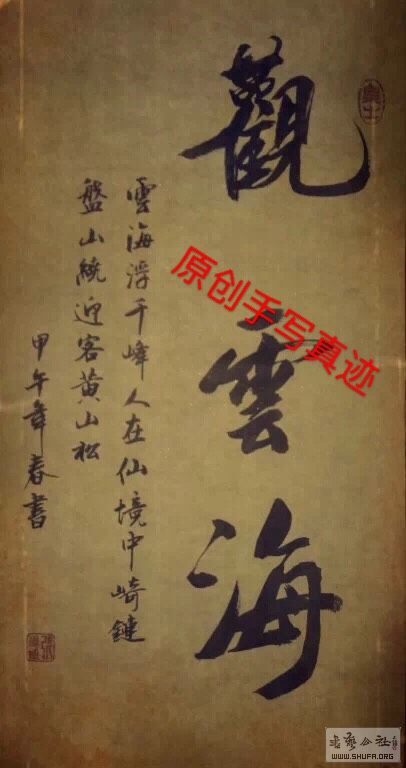 觀雲海
雲海浮千峰人在仙境中崎鏈
盤山繞迎客黄山松
甲午年春書
原创手写真迹
WWW.SHUFA.ORG